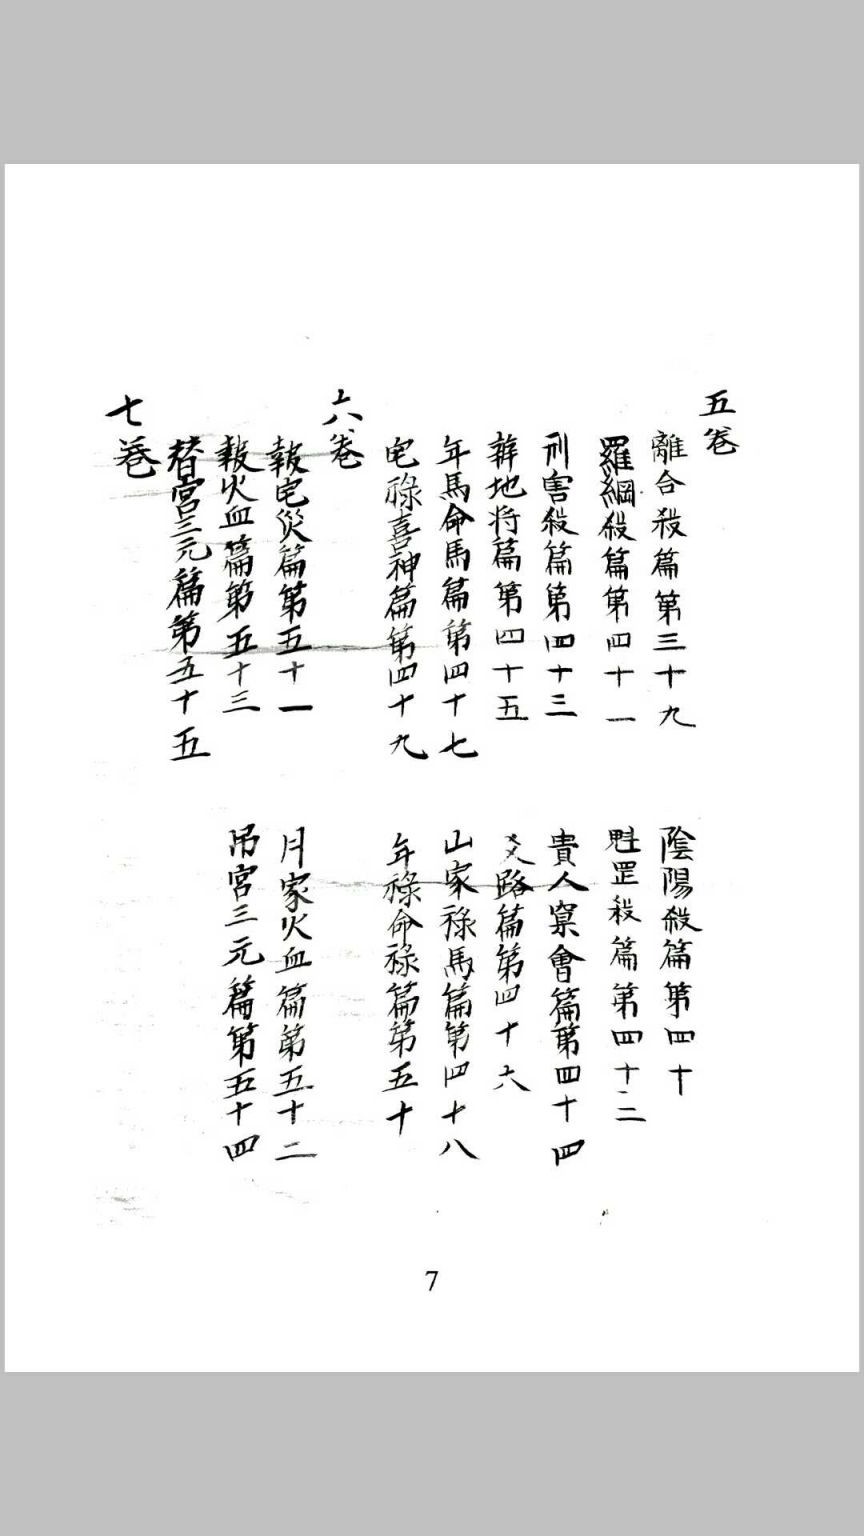 五卷
離合殺篇第三十九
陰陽殺篇第四十
羅綱殺篇第四十一
魁罡殺篇第四十二
刑害殺篇第四十三
貴人窠會篇第四十四
辭地将篇第四十五
路篇第四十六
年馬命馬篇第四十七
山家祿馬篇第四十八
宅祿喜神篇第四十九
年祿命祿篇第五十
六卷
報宅災篇第五十一
月家火血篇第五十二
報火血篇第五十三
吊宮三元篇第五十四
替宮三元篇第五十五
七卷
7